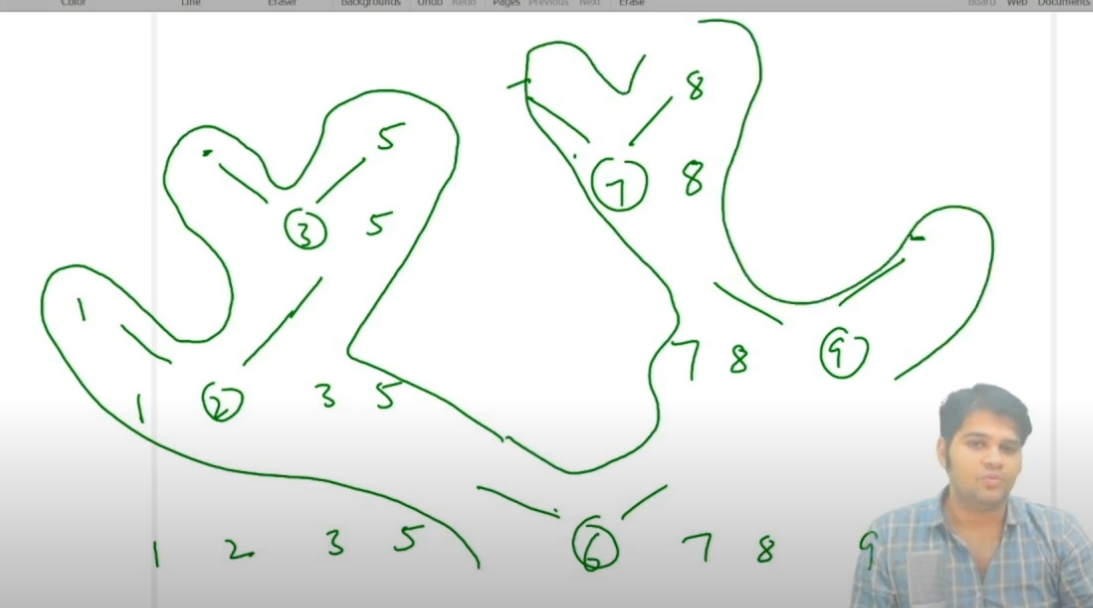 Color Line Eraser Backgrounds Undo Redo Pages Previous Next Erase Board Web Documents
8
5
7 8
3 5
7 8 9
1
1 2 3 5
1 2 3 5 6 7 8 9